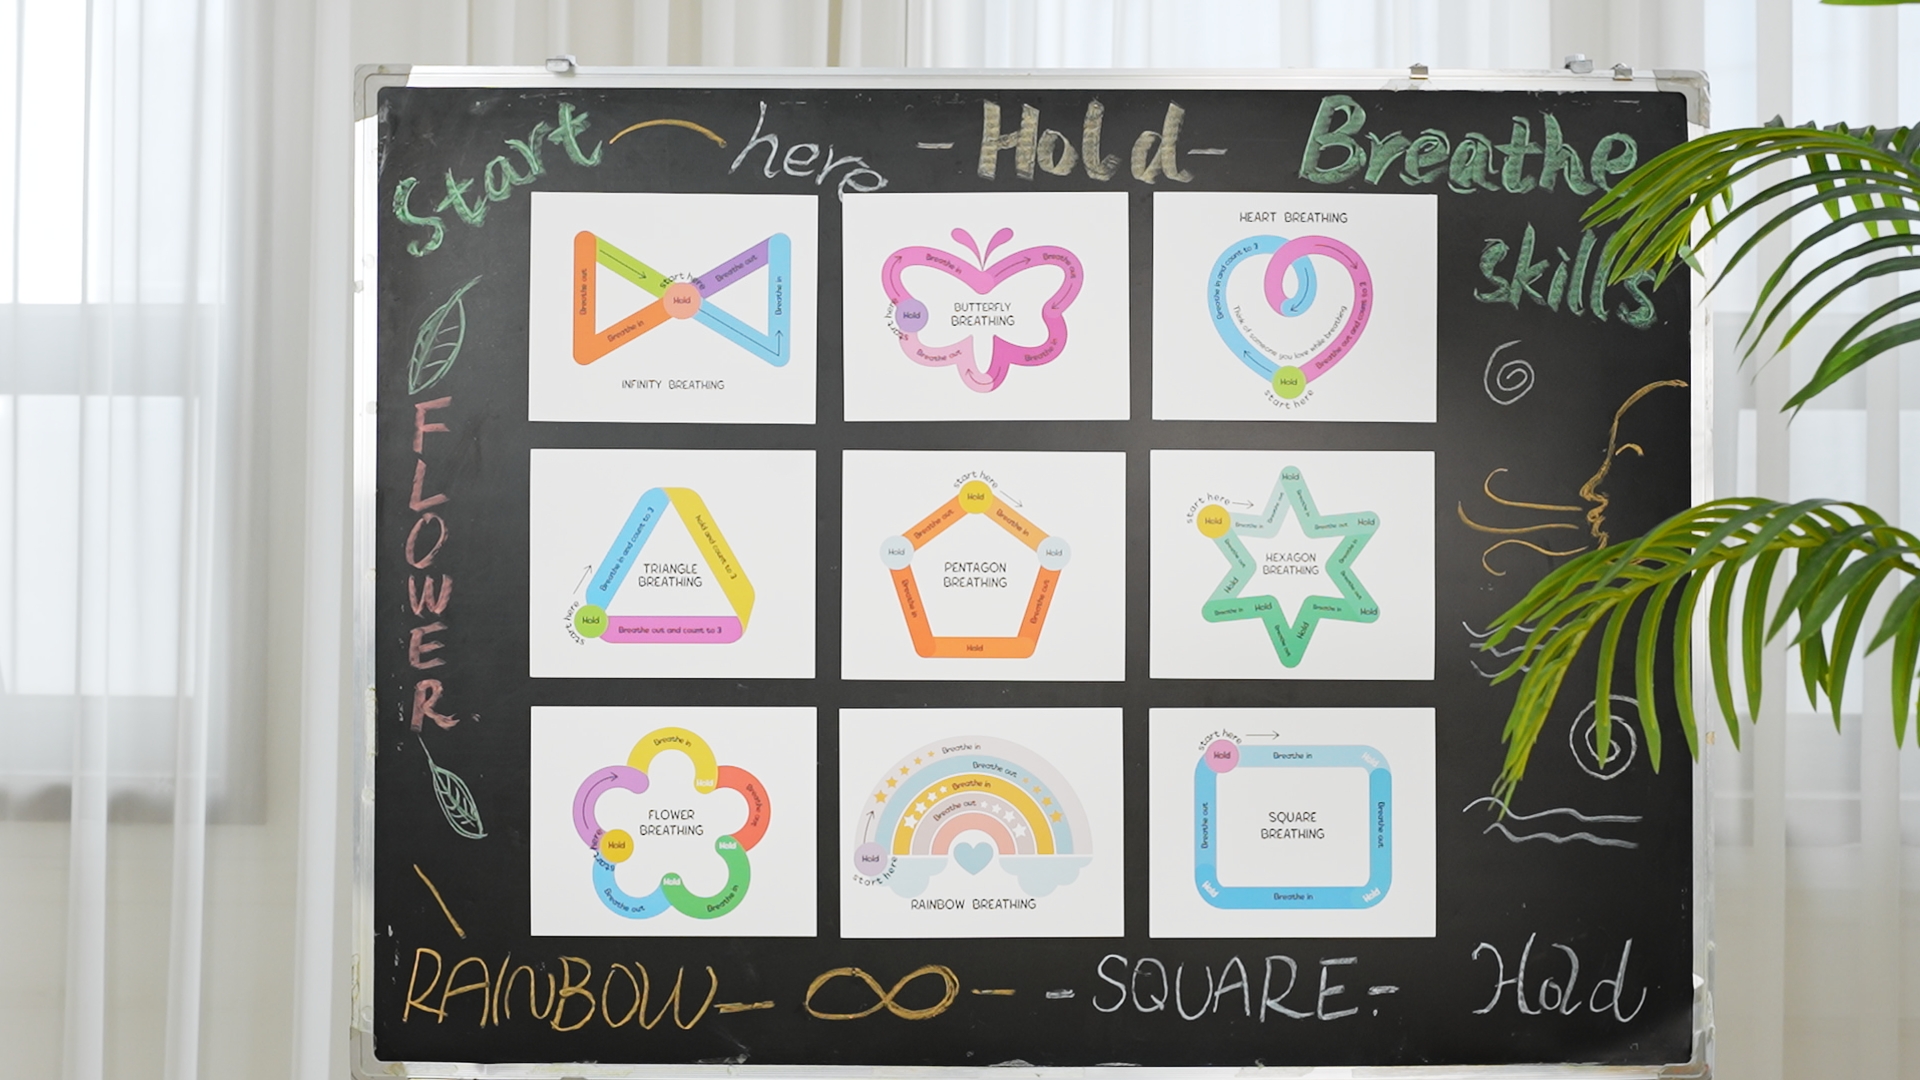 Start here - Hold - Breathe
skills
FLOWER
Breathe out
start here
Hold
Breathe out
Breathe in
Breathe in
INFINITY BREATHING
Breathe in
Breathe out
start here
Hold
BUTTERFLY
BREATHING
Breathe out
Breathe in
HEART BREATHING
Breathe in and count to 3
Think of someone you love while breathing
Breathe out and count to 3
Hold
start here
Breathe in and count to 3
hold and count to 3
TRIANGLE
BREATHING
start here
Hold
Breathe out and count to 3
start here
Hold
Breathe out
Breathe in
Hold
Hold
PENTAGON
BREATHING
Breathe in
Breathe out
Hold
Hold
start here
Hold
Breathe in
Breathe out
Breathe in
Breathe out
Hold
Breathe out
HEXAGON
BREATHING
Breathe in
Hold
Breathe out
Breathe in
Hold
Breathe in
Hold
Breathe out
Hold
Breathe in
Hold
Breathe out
FLOWER
BREATHING
start here
Hold
Hold
Hold
Breathe out
Breathe in
Breathe in
Breathe out
Breathe in
Breathe out
Hold
start here
RAINBOW BREATHING
start here
Hold
Breathe in
Hold
Breathe out
SQUARE
BREATHING
Breathe out
Hold
Breathe in
Hold
RAINBOW - ∞ - - SQUARE - Hold